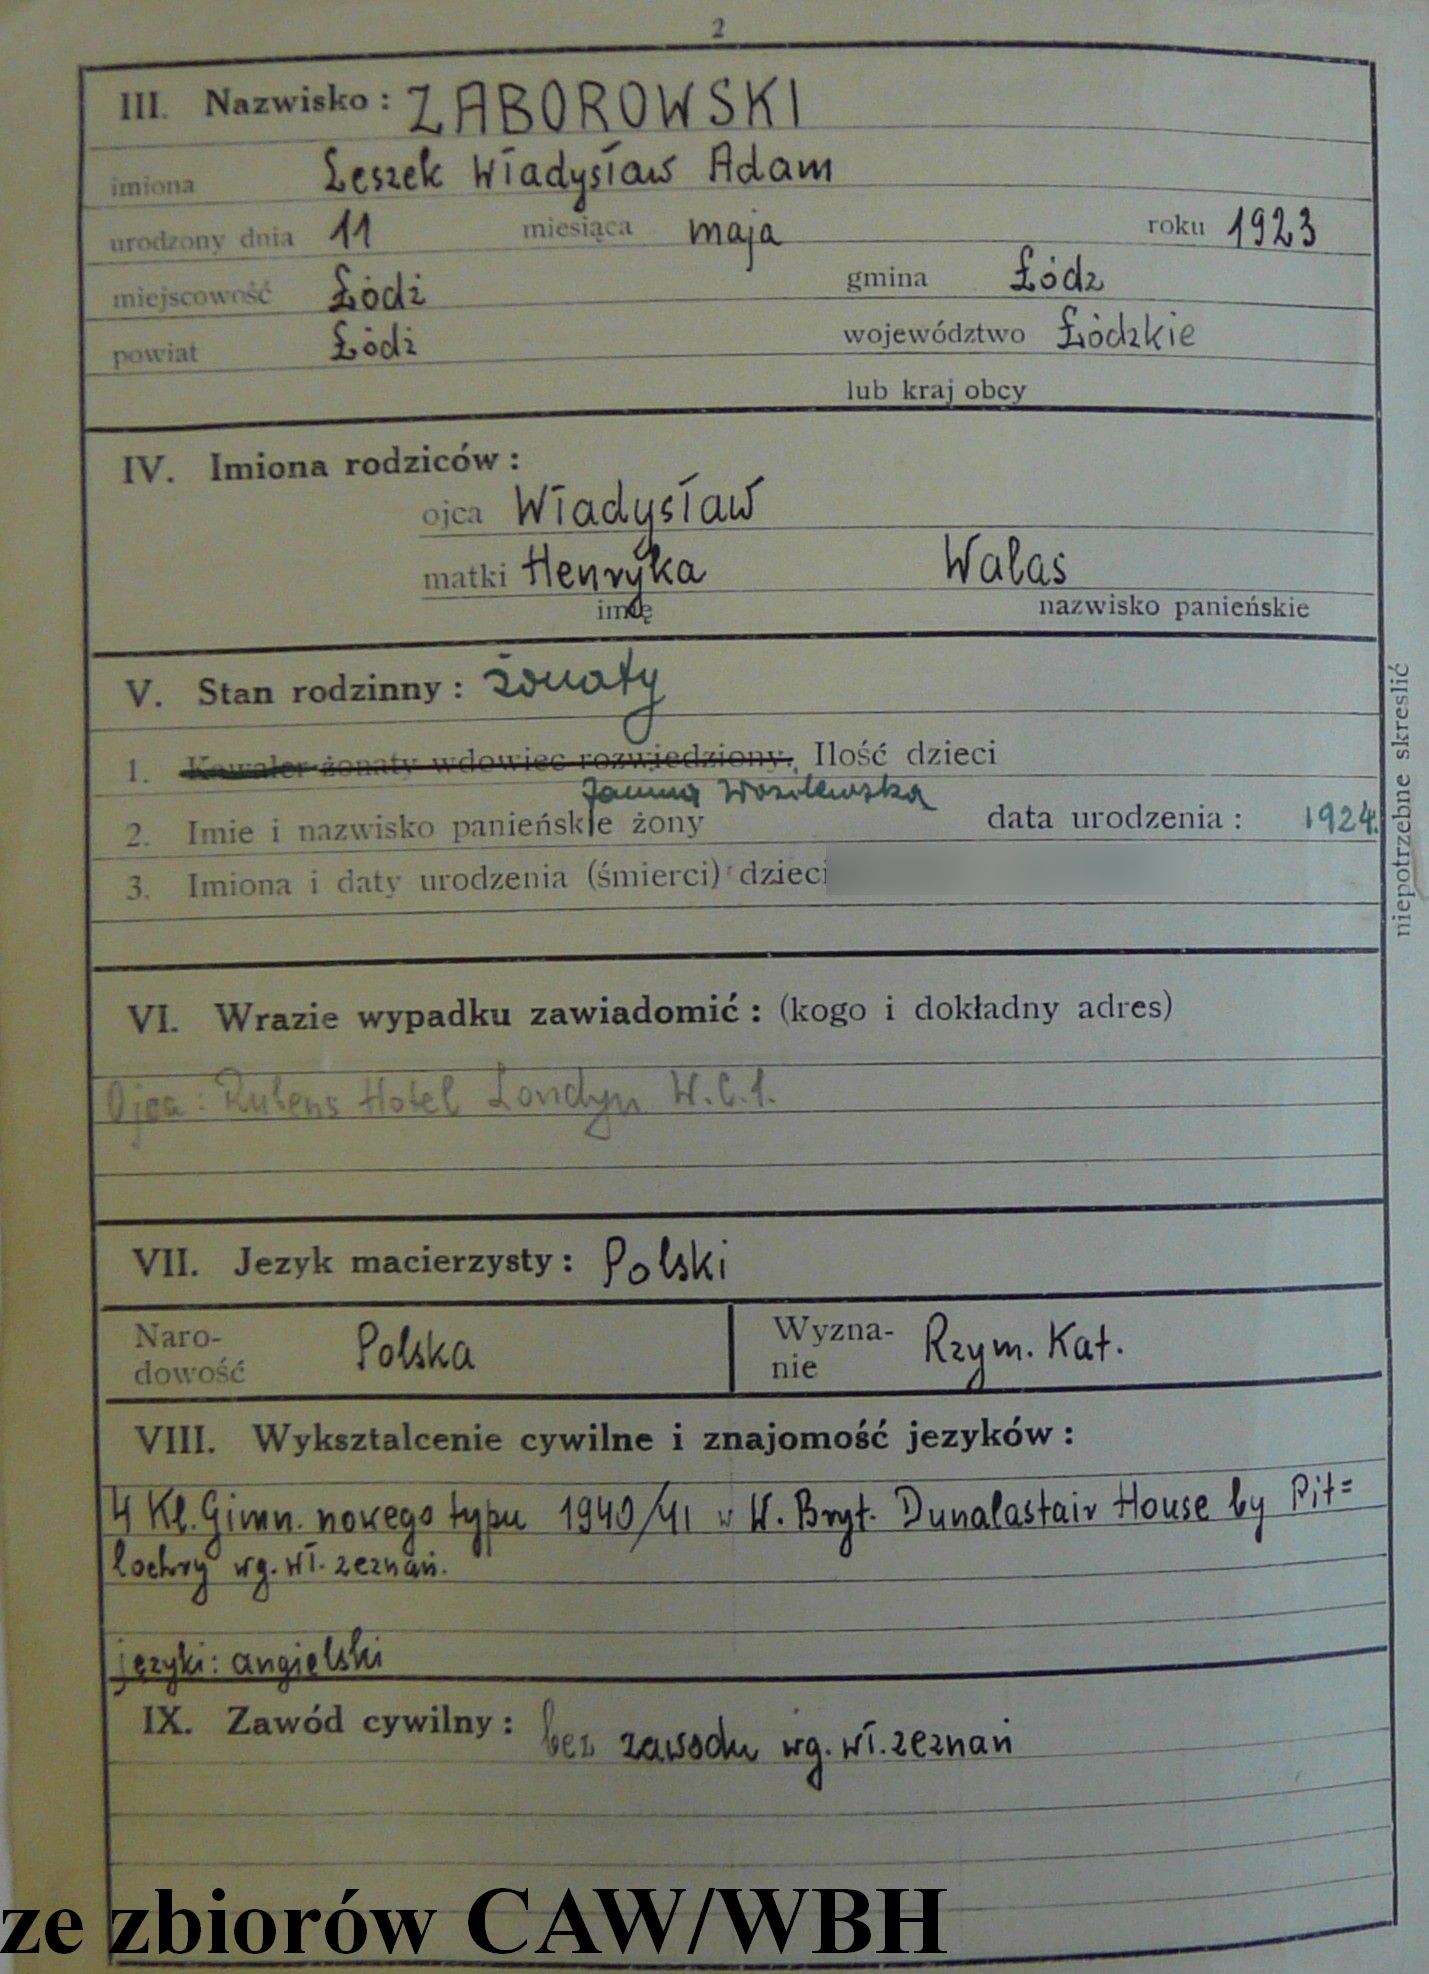 2
III. Nazwisko : ZABOROWSKI
imiona Leszek Władysław Adam
urodzony dnia 11 miesiąca maja roku 1923
miejscowość Łódź gmina Łódz
powiat Łódź województwo Łódzkie
lub kraj obcy
IV. Imiona rodziców :
ojca Władysław
matki Henryka Walas
imię nazwisko panieńskie
V. Stan rodzinny : żonaty
1. Kawaler żonaty wdowiec rozwiedziony. Ilość dzieci
Janina Wasilewska
2. Imie i nazwisko panieńskie żony data urodzenia : 1924.
3. Imiona i daty urodzenia (śmierci) dzieci
niepotrzebne skreslić
VI. Wrazie wypadku zawiadomić : (kogo i dokładny adres)
Ojca : Rubens Hotel Londyn W.C.1.
VII. Jezyk macierzysty : Polski
Naro- Polska Wyzna- Rzym. Kat.
dowość nie
VIII. Wyksztalcenie cywilne i znajomość jezyków :
4 Kl. Gimn. nowego typu 1940/41 w W. Bryt. Dunalastair House by Pit=
lochry wg. wł. zeznań.
języki: angielski
IX. Zawód cywilny : bez zawodu wg. wł. zeznań
ze zbiorów CAW/WBH